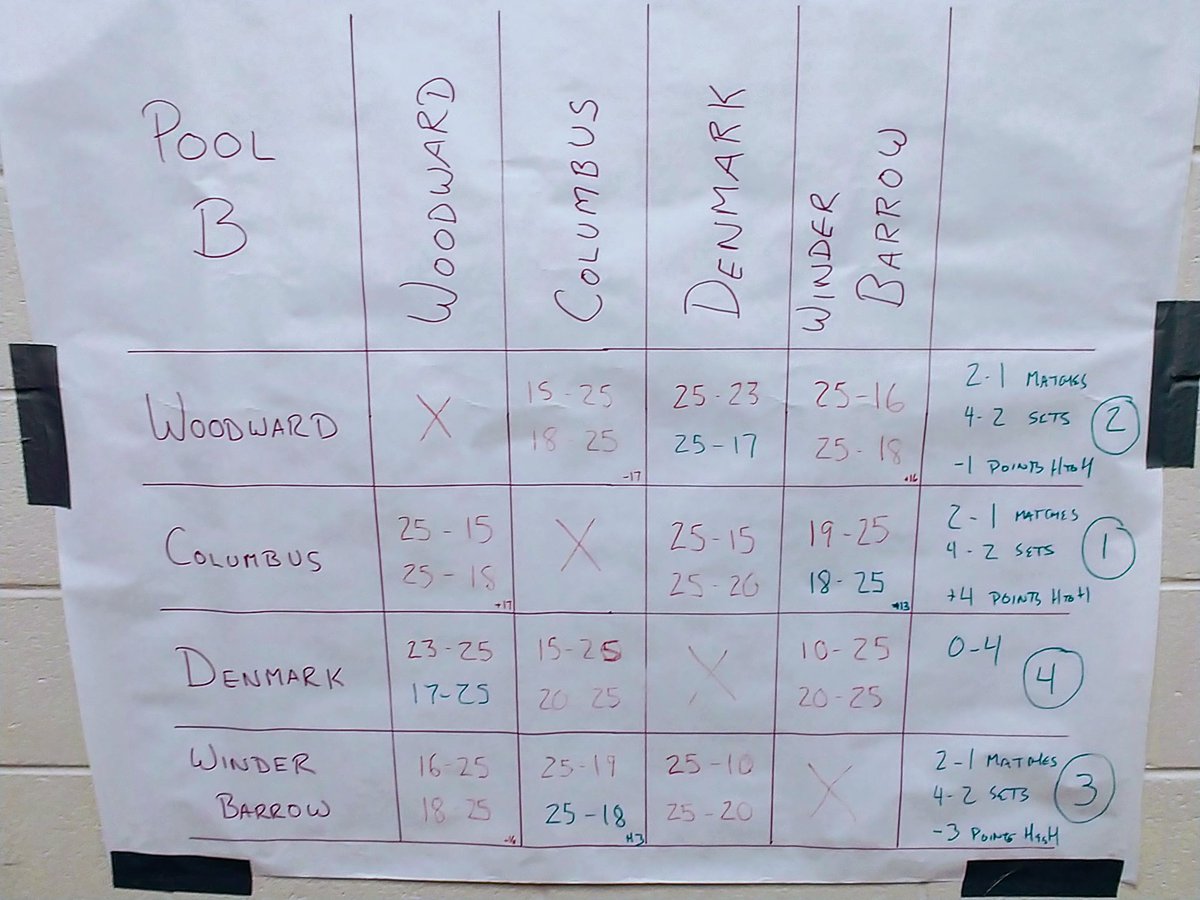 POOL
B
WOODWARD
COLUMBUS
DENMARK
WINDER
BARROW
WOODWARD
X
15-25
18-25
-17
25-23
25-17
25-16
25-18
+16
2-1 MATCHES
4-2 SETS
-1 POINTS HtoH
2
COLUMBUS
25-15
25-18
+17
X
25-15
25-20
19-25
18-25
-13
2-1 MATCHES
4-2 SETS
+4 POINTS HtoH
1
DENMARK
23-25
17-25
15-25
20-25
X
10-25
20-25
0-4
4
WINDER
BARROW
16-25
18-25
-16
25-19
25-18
+13
25-10
25-20
X
2-1 MATCHES
4-2 SETS
-3 POINTS
3